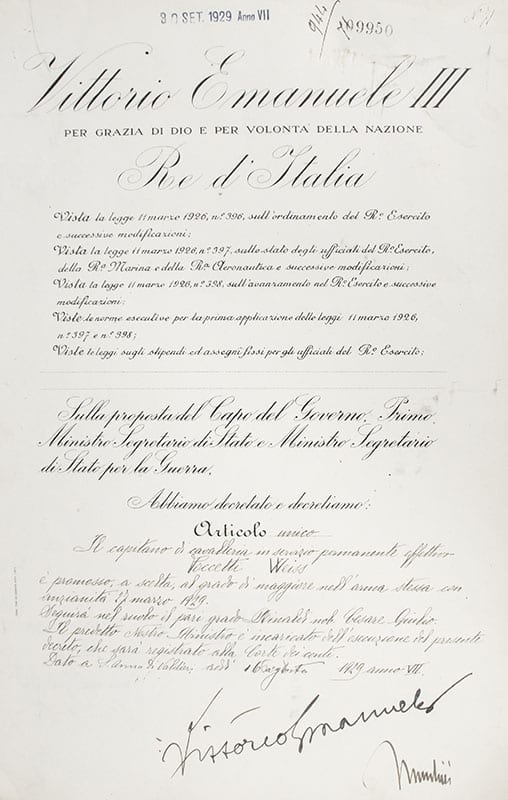 30 SET. 1929 Anno VII
944
09950
Vittorio Emanuele III
PER GRAZIA DI DIO E PER VOLONTÀ DELLA NAZIONE
Re d'Italia
Vista la legge 11 marzo 1926, n.º 396, sull'ordinamento del R.º Esercito
e successive modificazioni;
Vista la legge 11 marzo 1926, n.º 397, sullo stato degli ufficiali del R.º Esercito,
della R.ª Marina e della R.ª Aeronautica e successive modificazioni;
Vista la legge 11 marzo 1926, n.º 398, sull'avanzamento nel R.º Esercito e successive
modificazioni;
Viste le norme esecutive per la prima applicazione delle leggi 11 marzo 1926,
n.º 397 e n.º 398;
Viste le leggi sugli stipendi ed assegni fissi per gli ufficiali del R.º Esercito;
Sulla proposta del Capo del Governo, Primo
Ministro Segretario di Stato e Ministro Segretario
di Stato per la Guerra;
Abbiamo decretato e decretiamo:
Articolo unico
Il capitano di cavalleria in servizio permanente effettivo
Weiss
è promosso, a scelta, al grado di maggiore nell'arma stessa con
anzianità 27 marzo 1929.
Seguirà nel ruolo il pari grado Rinaldi nob. Cesare Giulio.
Il predetto Nostro Ministro è incaricato dell'esecuzione del presente
decreto, che sarà registrato alla Corte dei conti.
Dato a S. Anna di Valdieri addì 16 agosto 1929 anno VII.
Vittorio Emanuele